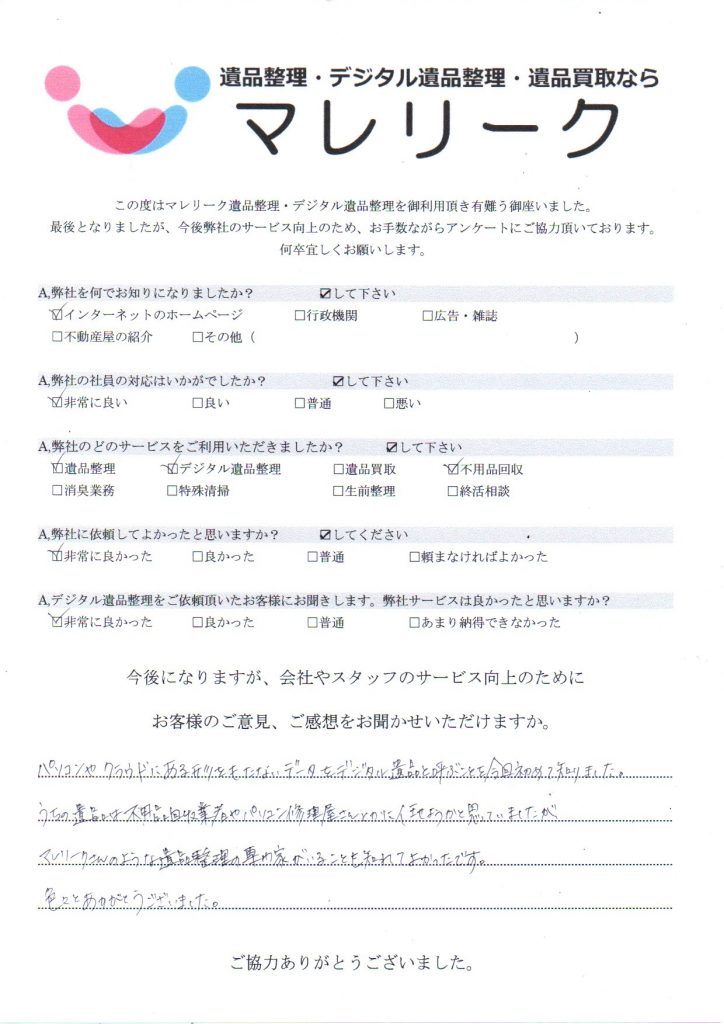 遺品整理・デジタル遺品整理・遺品買取なら
マレリーク
この度はマレリーク遺品整理・デジタル遺品整理を御利用頂き有難う御座いました。
最後となりましたが、今後弊社のサービス向上のため、お手数ながらアンケートにご協力頂いております。
何卒宜しくお願いします。
A,弊社を何でお知りになりましたか？ ☑して下さい
☑インターネットのホームページ □行政機関 □広告・雑誌
□不動産屋の紹介 □その他（ ）
A,弊社の社員の対応はいかがでしたか？ ☑して下さい
☑非常に良い □良い □普通 □悪い
A,弊社のどのサービスをご利用いただきましたか？ ☑して下さい
☑遺品整理 ☑デジタル遺品整理 □遺品買取 ☑不用品回収
□消臭業務 □特殊清掃 □生前整理 □終活相談
A,弊社に依頼してよかったと思いますか？ ☑してください
☑非常に良かった □良かった □普通 □頼まなければよかった
A,デジタル遺品整理をご依頼頂いたお客様にお聞きします。弊社サービスは良かったと思いますか？
☑非常に良かった □良かった □普通 □あまり納得できなかった
今後になりますが、会社やスタッフのサービス向上のために
お客様のご意見、ご感想をお聞かせいただけますか。
パソコンやクラウドにある形をもたないデータをデジタル遺品と呼ぶことを今回初めて知りました。
うちの遺品は不用品回収業者やパソコン修理屋さんとかに任せようかと思っていましたが
マレリークさんのような遺品整理の専門家がいることを知れてよかったです。
色々とありがとうございました。
ご協力ありがとうございました。